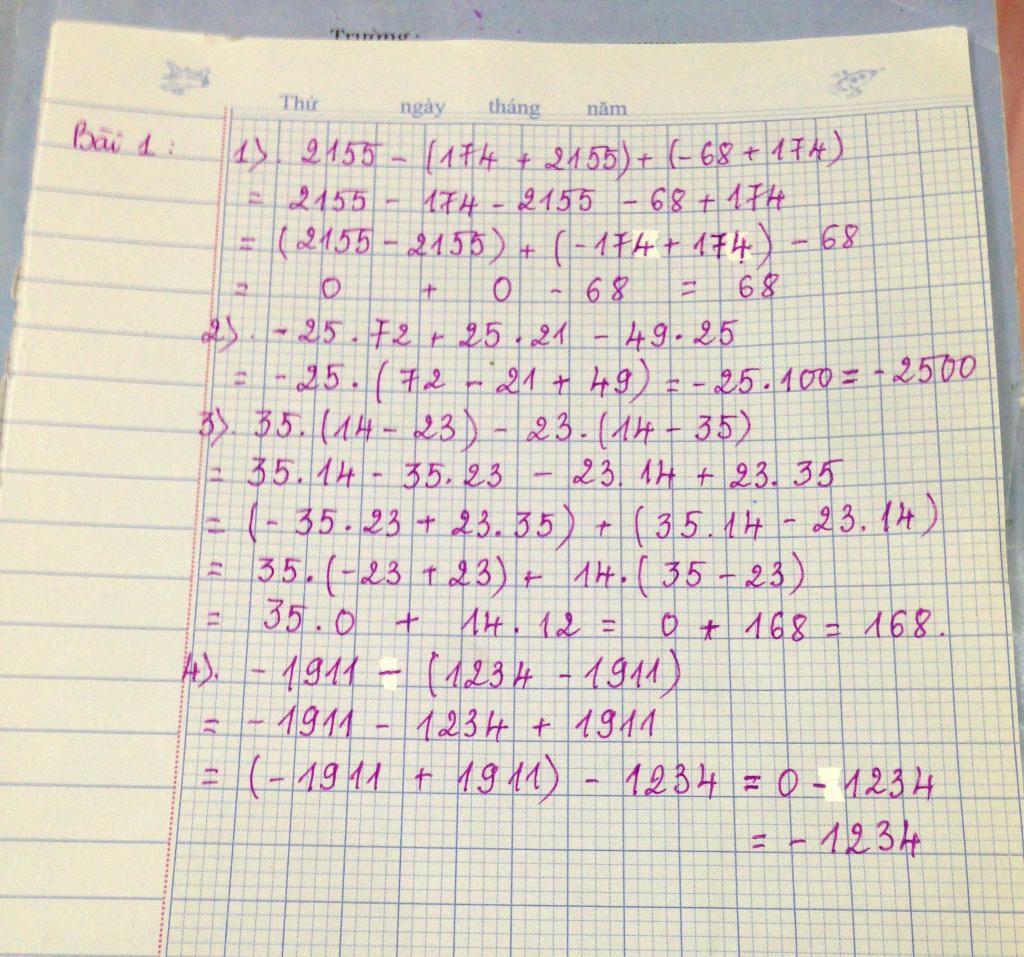 Trường:
Thứ ngày tháng năm
Bài 1: 1). 2155 - (174 + 2155) + (-68 + 174)
= 2155 - 174 - 2155 - 68 + 174
= (2155 - 2155) + (-174 + 174) - 68
= 0 + 0 - 68 = 68
2). -25.72 + 25.21 - 49.25
= -25.(72 - 21 + 49) = -25.100 = -2500
3). 35.(14 - 23) - 23.(14 - 35)
= 35.14 - 35.23 - 23.14 + 23.35
= (-35.23 + 23.35) + (35.14 - 23.14)
= 35.(-23 + 23) + 14.(35 - 23)
= 35.0 + 14.12 = 0 + 168 = 168.
4). -1911 - (1234 - 1911)
= -1911 - 1234 + 1911
= (-1911 + 1911) - 1234 = 0 - 1234
= -1234